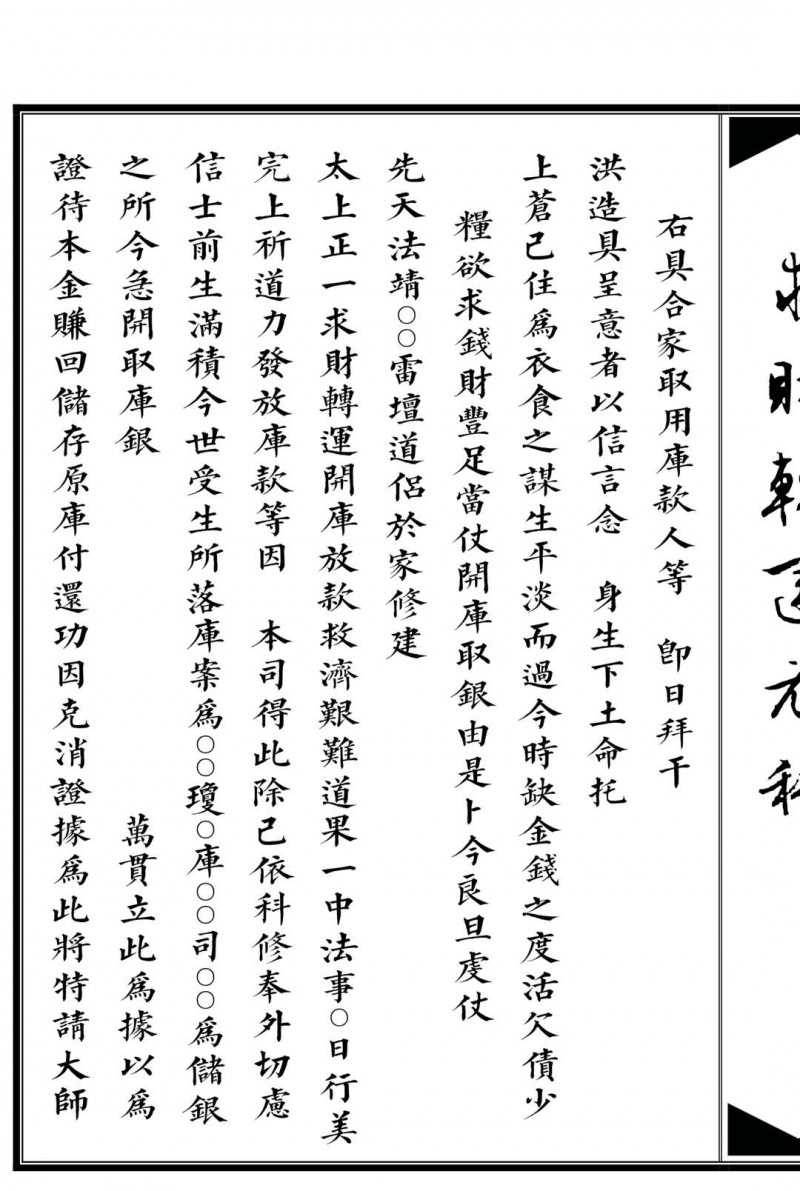 求財轉運九科
右具合家取用庫款人等　卽日拜干
洪造具呈意者以信言念　身生下土命托
上蒼已住爲衣食之謀生平淡而過今時缺金錢之度活欠債少
糧欲求錢財豐足當仗開庫取銀由是卜今良旦虔仗
先天法靖○○雷壇道侶於家修建
太上正一求財轉運開庫放款救濟艱難道果一中法事○日行美
完上祈道力發放庫款等因　本司得此除已依科修奉外切慮
信士前生滿積今世受生所落庫案爲○○瓊○庫○○司○○爲儲銀
之所今急開取庫銀　萬貫立此爲據以爲
證待本金賺回儲存原庫付還功因克消證據爲此將特請大師